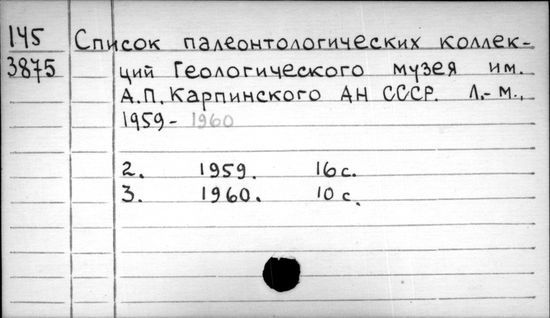 145 Список палеонтологических коллек-
3875 ций Геологического музея им.
А.П. Карпинского АН СССР. Л.-М.,
1959- 1960
2. 1959. 16 с.
3. 1960. 10 с.